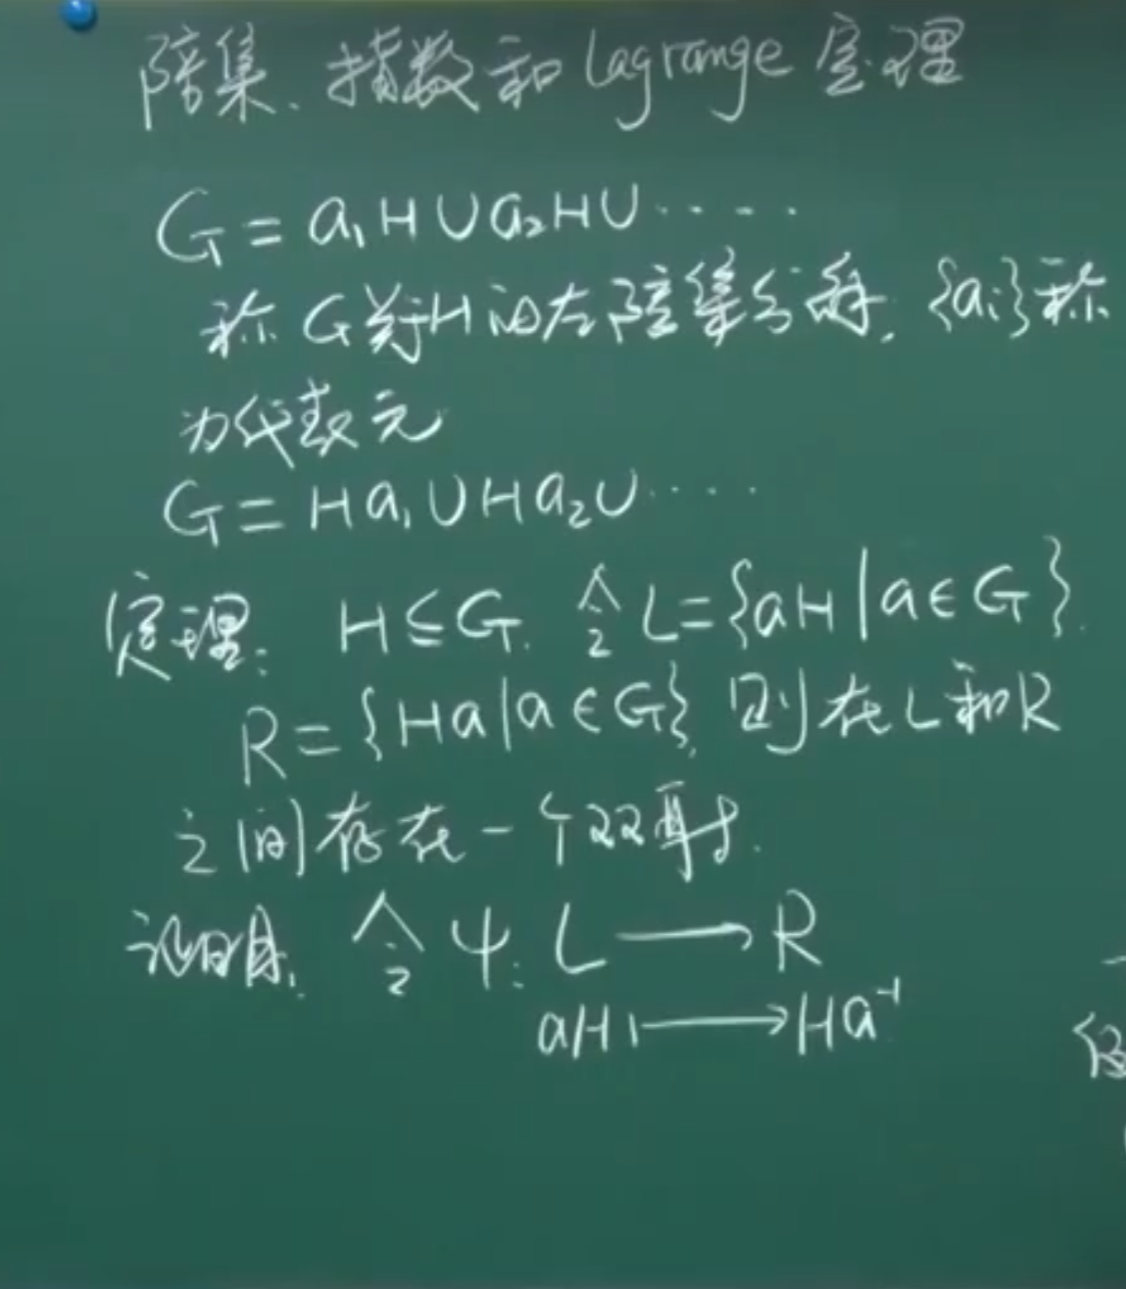 陪集、指数和Lagrange定理
G=a₁H∪a₂H∪·····
称G关于H的左陪集分解. {aᵢ}称
为代表元
G=Ha₁∪Ha₂∪····
定理: H≤G. 令L={aH|a∈G}.
R={Ha|a∈G}, 则在L和R
之间存在一个双射.
证明. 令ψ: L⟶R
aH⟼Ha⁻¹